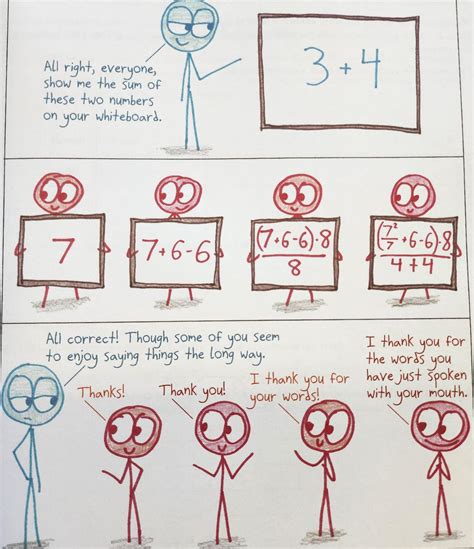 All right, everyone,
show me the sum of
these two numbers
on your whiteboard.
3+4
7
7+6-6
(7+6-6)·8
8
(7²/7+6-6)·8
4+4
All correct! Though some of you seem
to enjoy saying things the long way.
Thanks!
Thank you!
I thank you for
your words!
I thank you for
the words you
have just spoken
with your mouth.